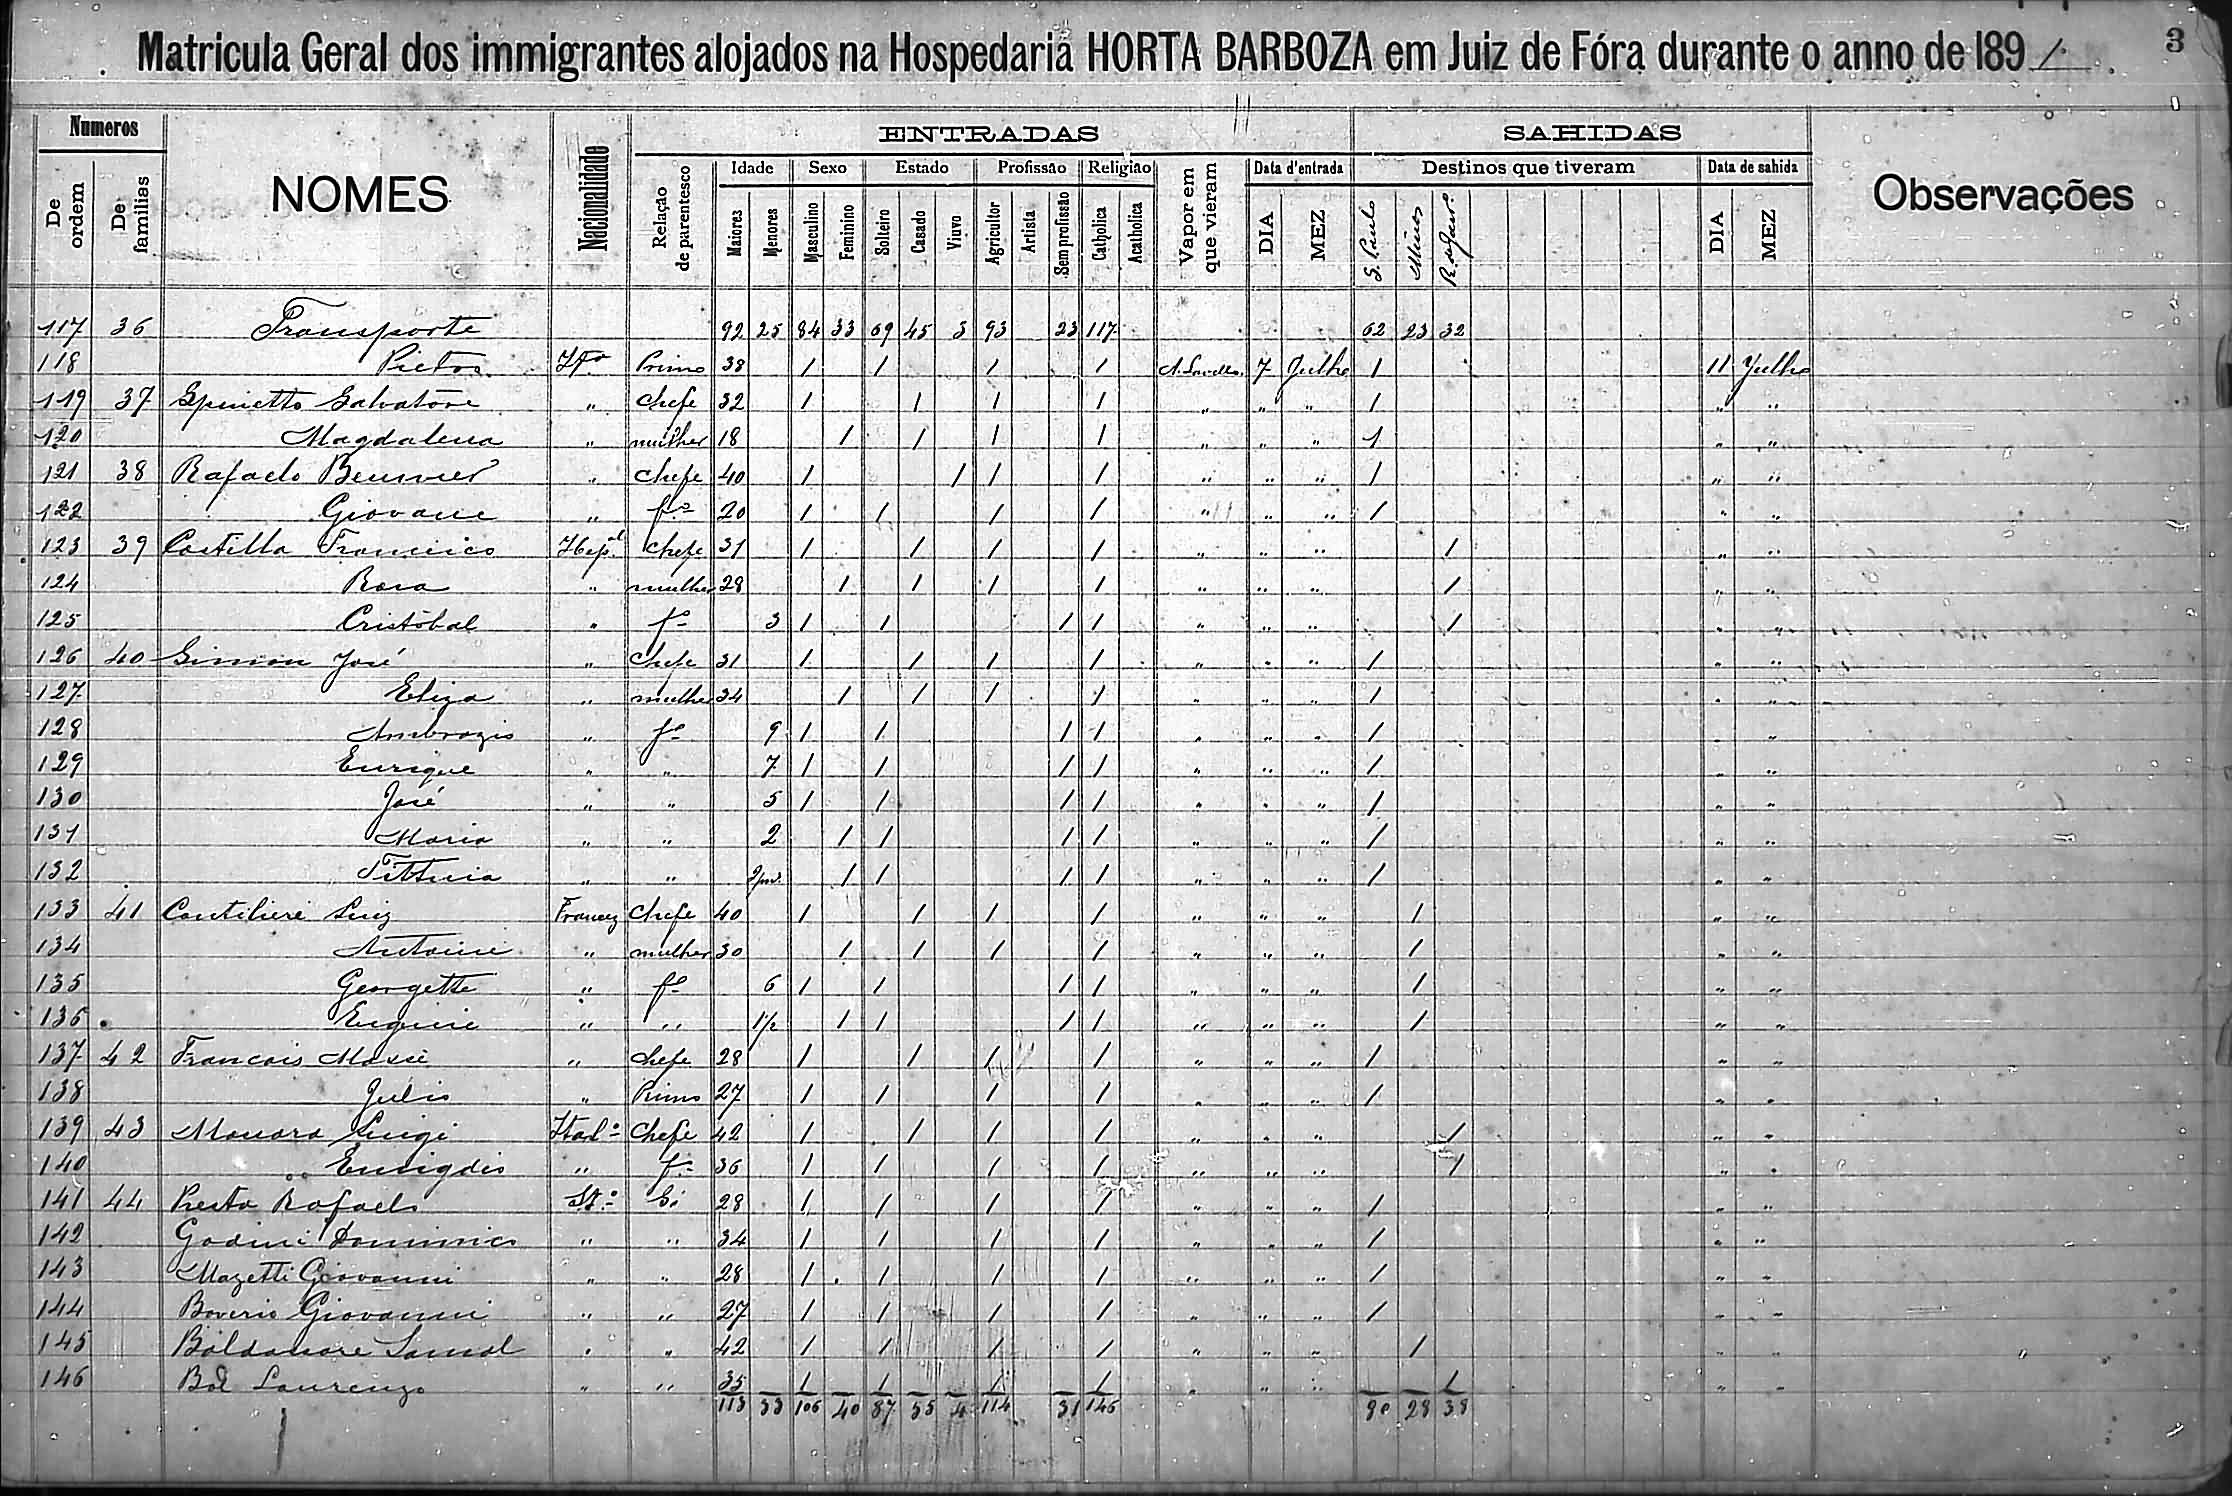 Matricula Geral dos immigrantes alojados na Hospedaria HORTA BARBOZA em Juiz de Fóra durante o anno de 1891. 3
Numeros NOMES Nacionalidade ENTRADAS SAHIDAS Observações
De ordem De familias Relação de parentesco Idade Sexo Estado Profissão Religião Vapor em que vieram Data d'entrada Destinos que tiveram Data de sahida
Maiores Menores Masculino Feminino Solteiro Casado Viuvo Agricultor Artista Sem profissão Catholica Acatholica DIA MEZ S. Paulo Minas R. de Janr.º DIA MEZ
117 36 Transporte 92 25 84 33 69 45 3 93 23 117 62 23 32
118 Pietro Itº Primo 38 1 1 1 1 7 Julho 1 11 Julho
119 37 Spinetto Salvatore " chefe 32 1 1 1 1 " " " 1 " "
120 Magdalena " mulher 18 1 1 1 1 " " " 1 " "
121 38 Rafaelo " chefe 40 1 1 1 1 " " " 1 " "
122 Giovane " fº 20 1 1 1 1 " " " 1 " "
123 39 Castilla Francisco Hespl chefe 31 1 1 1 1 " " " 1 " "
124 Rosa " mulher 28 1 1 1 1 " " " 1 " "
125 Cristóbal " fº 3 1 1 1 1 " " " 1 " "
126 40 Simon José " chefe 31 1 1 1 1 " " " 1 " "
127 Eliza " mulher 34 1 1 1 1 " " " 1 " "
128 Ambrozio " fº 9 1 1 1 1 " " " 1 " "
129 Enrique " " 7 1 1 1 1 " " " 1 " "
130 José " " 5 1 1 1 1 " " " 1 " "
131 Maria " " 2 1 1 1 1 " " " 1 " "
132 " " 1 1 1 1 " " " 1 " "
133 41 Cantilieri Luiz Francez chefe 40 1 1 1 1 " " " 1 " "
134 Antoini " mulher 30 1 1 1 1 " " " 1 " "
135 Georgette " fº 6 1 1 1 1 " " " 1 " "
136 Eugenie " " 1½ 1 1 1 1 " " " 1 " "
137 42 Francois Massé " chefe 28 1 1 1 1 " " " 1 " "
138 Julio " Primo 27 1 1 1 1 " " " 1 " "
139 43 Luigi Italº chefe 42 1 1 1 1 " " " 1 " "
140 " fº 36 1 1 1 1 " " " 1 " "
141 44 Presta Rafaelo Itº Só 28 1 1 1 1 " " " 1 " "
142 Godini Dominico " " 34 1 1 1 1 " " " 1 " "
143 Mazetti Giovanni " " 28 1 1 1 1 " " " 1 " "
144 Boverio Giovanni " " 27 1 1 1 1 " " " 1 " "
145 " " 42 1 1 1 1 " " " 1 " "
146 Laurenzo " " 35 1 1 1 1 " " " 1 " "
113 33 106 40 87 55 4 114 31 146 80 28 38